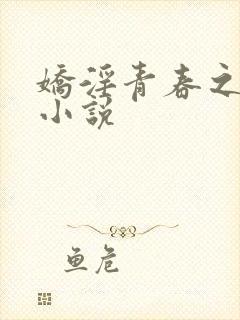 嬌淫青春之
小說
鱼危